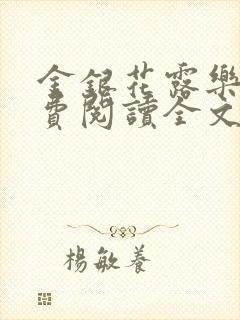 金銀花露樂
費閱讀全文
楊敏養